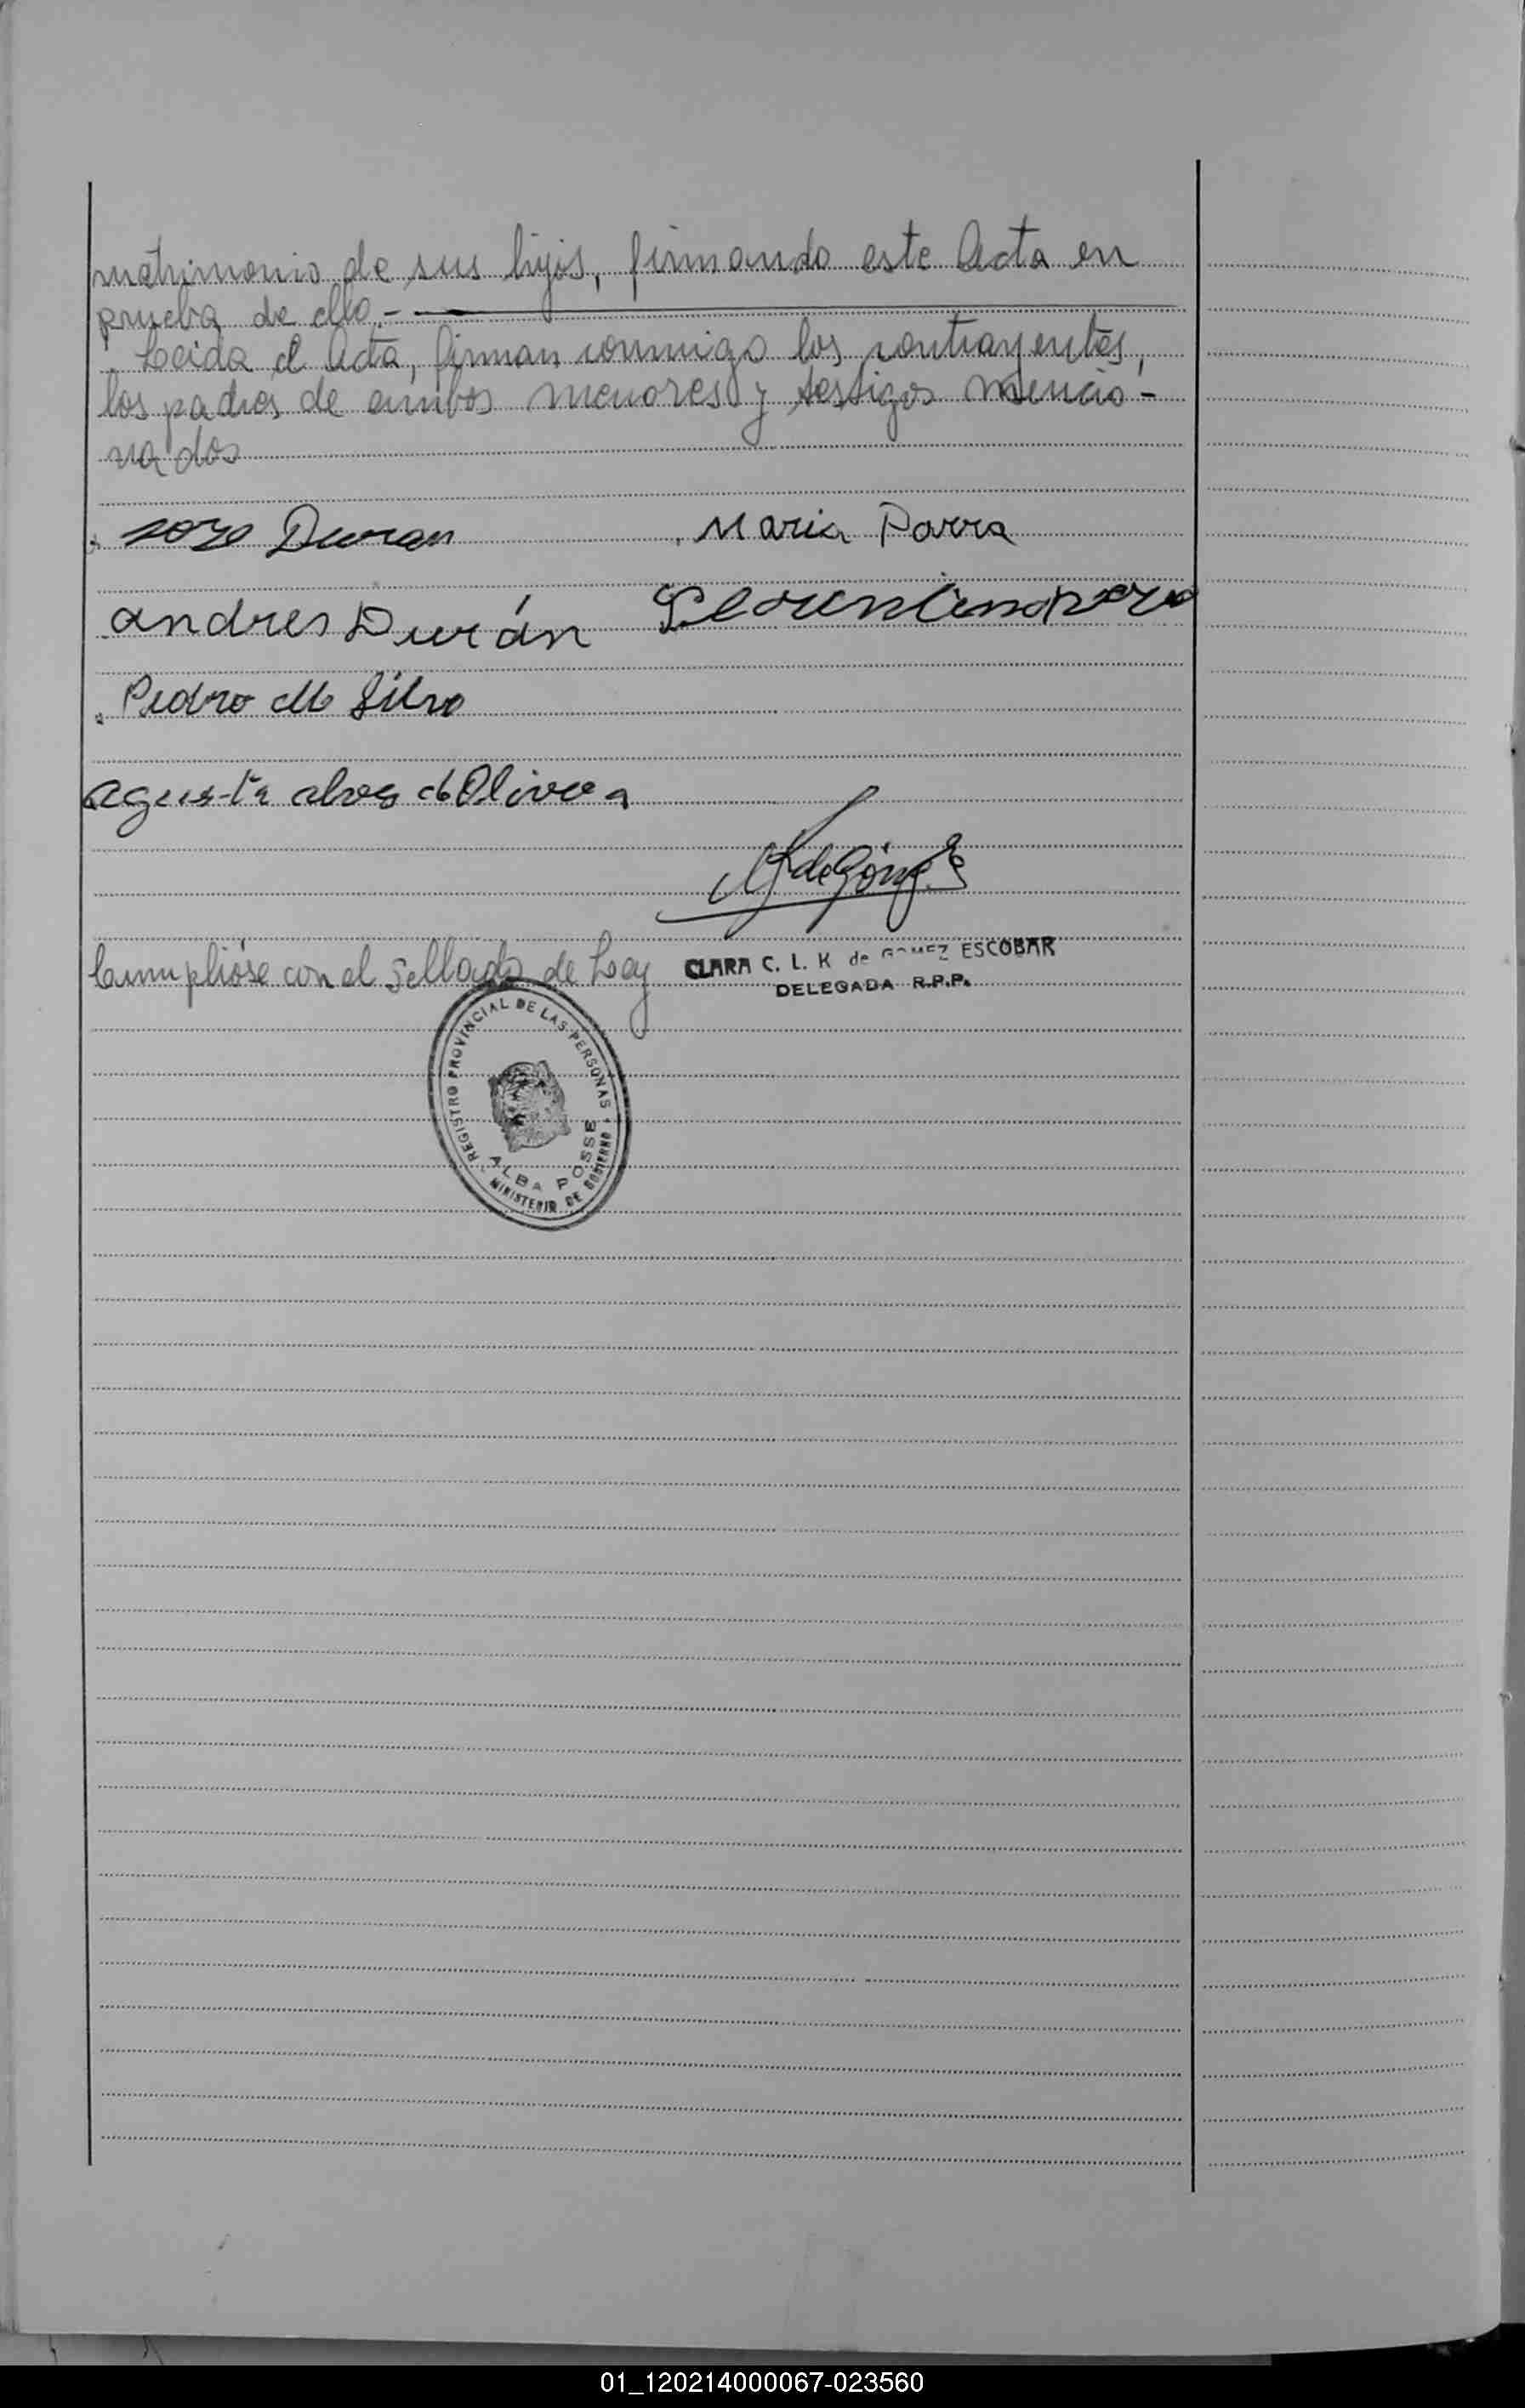 matrimonio de sus hijos, firmando este Acta en
prueba de ello.-
Leida el Acta, firman conmigo los contrayentes,
los padres de ambos menores y testigos mencio-
nados
Duran Maria Parra
andres Durán
Pedro M Silva
de Gómez E
Cumplióse con el Sellado de Ley CLARA C. L. K de GOMEZ ESCOBAR
DELEGADA R.P.P.
REGISTRO PROVINCIAL DE LAS PERSONAS
ALBA POSSE
MINISTERIO DE GOBIERNO
01_120214000067-023560